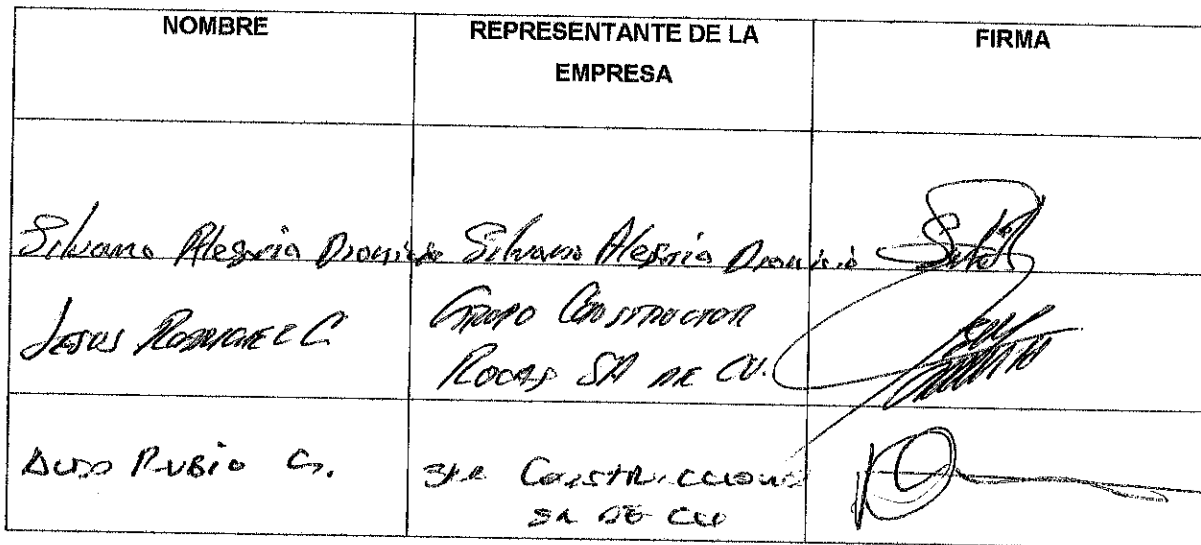 NOMBRE
REPRESENTANTE DE LA
EMPRESA
FIRMA
Silvano Alegria Dionicio
Silvano Alegria Dionicio
JESUS RODRIGUEZ C.
GRUPO CONSTRUCTOR
ROCAS SA DE CV.
RUBIO G.
CONSTRUCCIONES
SA DE CV